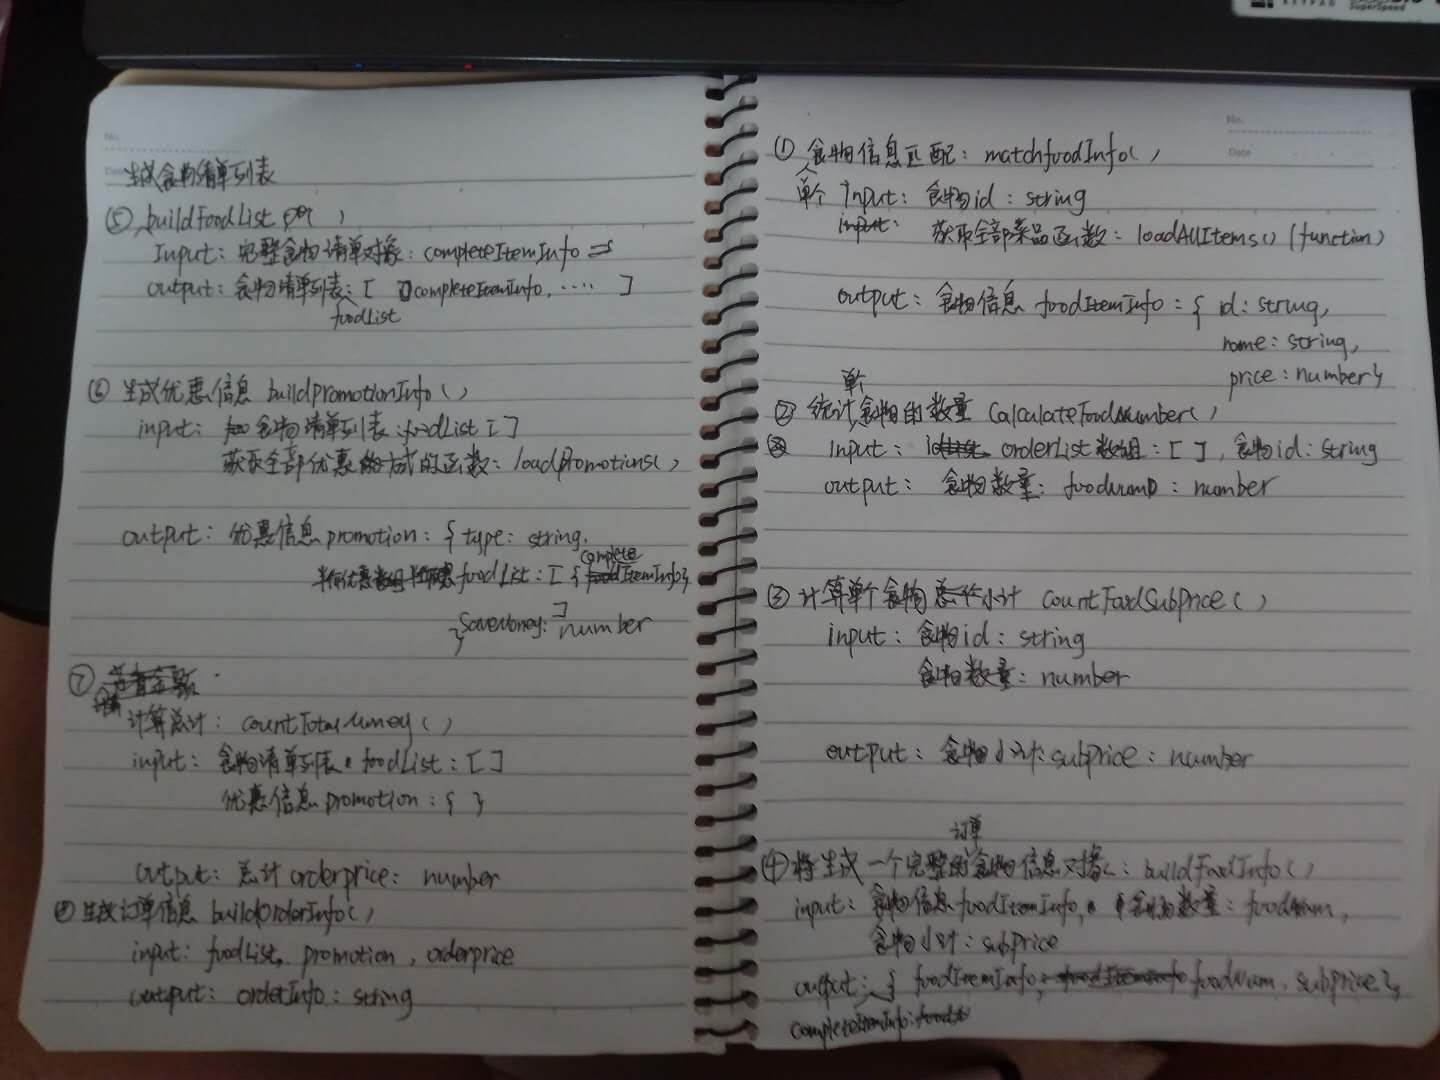 No.
生成食物清单列表
⑤ buildFoodList ( )
Input: 完整食物清单对象: completeItemInfo
output: 食物清单列表: [ completeItemInfo, .... ]
foodList
⑥ 生成优惠信息 buildPromotionInfo( )
input: 食物清单列表: foodList [ ]
获取全部优惠方式的函数: loadPromotions( )
output: 优惠信息 promotion: { type: string,
complete
半价优惠 foodList: [ { ItemInfo}
]
SaveMoney: number
}
⑦
计算总计: countTotalMoney ( )
input: 食物清单列表 foodList: [ ]
优惠信息 promotion: { }
output: 总计 orderprice: number
⑧ 生成订单信息 buildOrderInfo( )
input: foodList, promotion, orderprice
output: orderInfo: string
No.
Date
① 食物信息匹配: matchfoodInfo( )
单个 Input: 食物id: string
input: 获取全部菜品函数: loadAllItems() (function)
output: 食物信息 foodItemInfo = { id: string,
name: string,
price: number}
单
② 统计食物的数量 CalculateFoodNumber( )
Input: orderList 数组: [ ], 食物id: string
output: 食物数量: foodnum: number
③ 计算单个食物小计 countFoodSubPrice( )
input: 食物id: string
食物数量: number
output: 食物小计: subprice: number
订单
④ 生成一个完整的食物信息对象: buildFoodInfo( )
input: 食物信息 foodItemInfo, 食物数量: foodNum,
食物小计: subprice
output: { foodItemInfo, foodNum, subprice},
completeItemInfo: